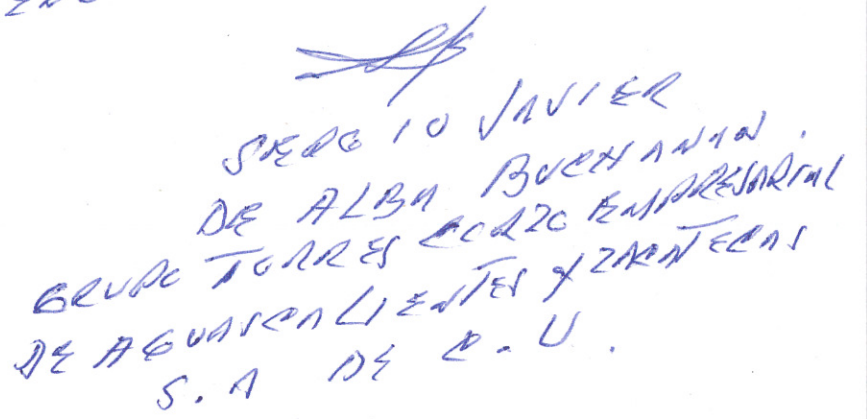 SERGIO JAVIER
DE ALBA BUCHANAN.
GRUPO TORRES CORZO EMPRESARIAL
DE AGUASCALIENTES Y ZACATECAS
S.A DE C.V.